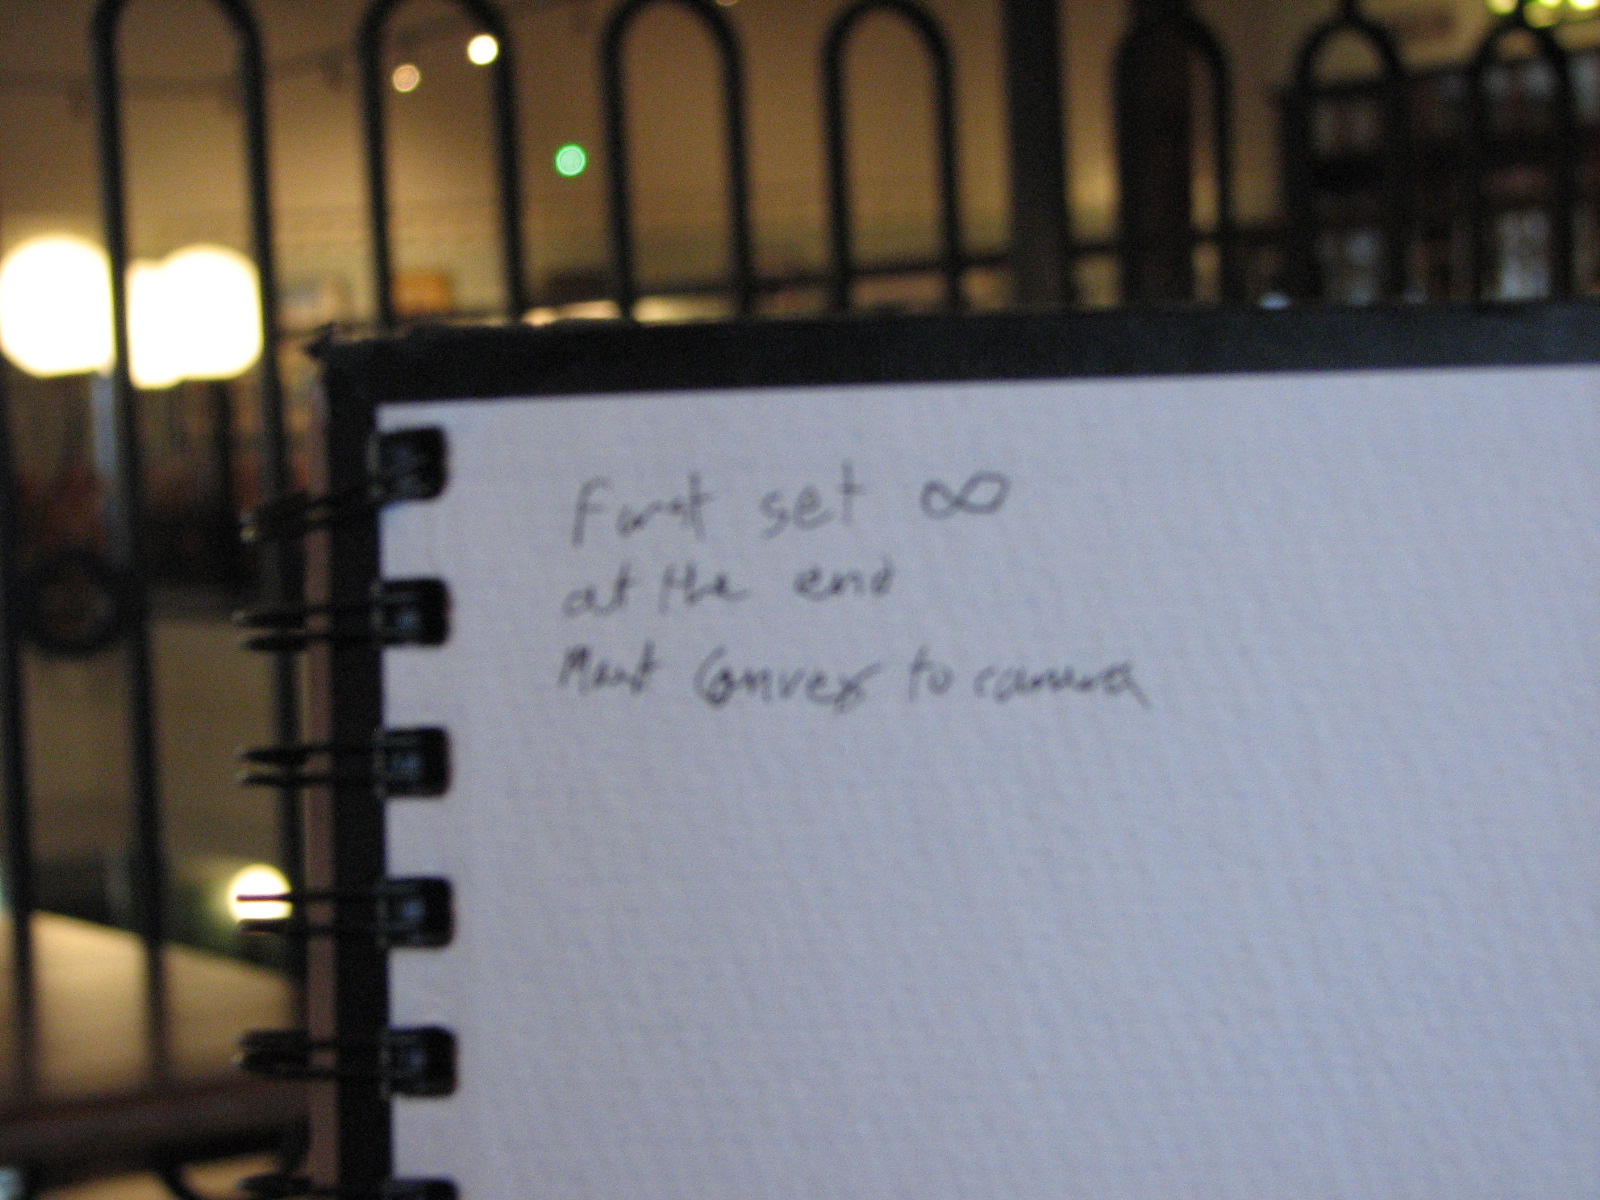 First set ∞
at the end
Most Convex to camera